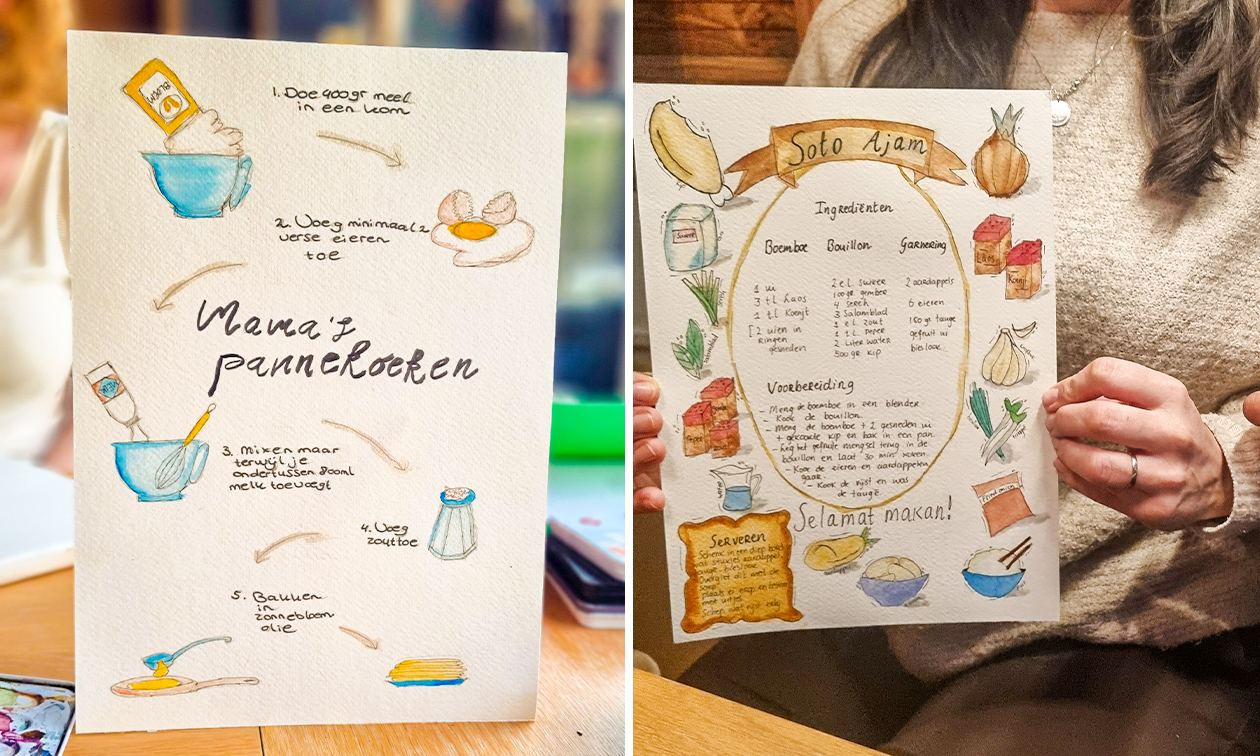 BLOEM
1. Doe 400gr meel
in een kom
2. Voeg minimaal 2
verse eieren
toe
Mama's
pannekoeken
3. Mixen maar
terwijl je
ondertussen 800ml
melk toevoegt
4. Voeg
zout toe
5. Bakken
in
zonnebloem
olie
Soto Ajam
Ingrediënten
Boemboe Bouillon Garnering
1 ui
3 t.l Laos
1 t.l Koenjt
[2 uien in
ringen
gesneden
2 e.l suiker
100 gr gember
4 sereh
3 Salamblad
1 e.l zout
1 t.l. peper
2 Liter water
500 gr kip
2 aardappels
6 eieren
150 gr tauge
gefruit ui
bieslook
Voorbereiding
- Meng de boemboe in een blender
- Kook de bouillon.
- Meng de boemboe + 2 gesneden ui
+ gekookte kip en bak in een pan.
- Leg het gefruite mengsel terug in de
bouillon en laat 30 min koken.
- Kook de eieren en aardappelen
gaar.
- Kook de rijst en was
de taugé
Selamat makan!
Suiker
Laos
Koenjt
salamblad
Peper
water
Serveren
Schenk in een diep bord
tauge bieslook
Overgiet dit met de
soep
met uitjes